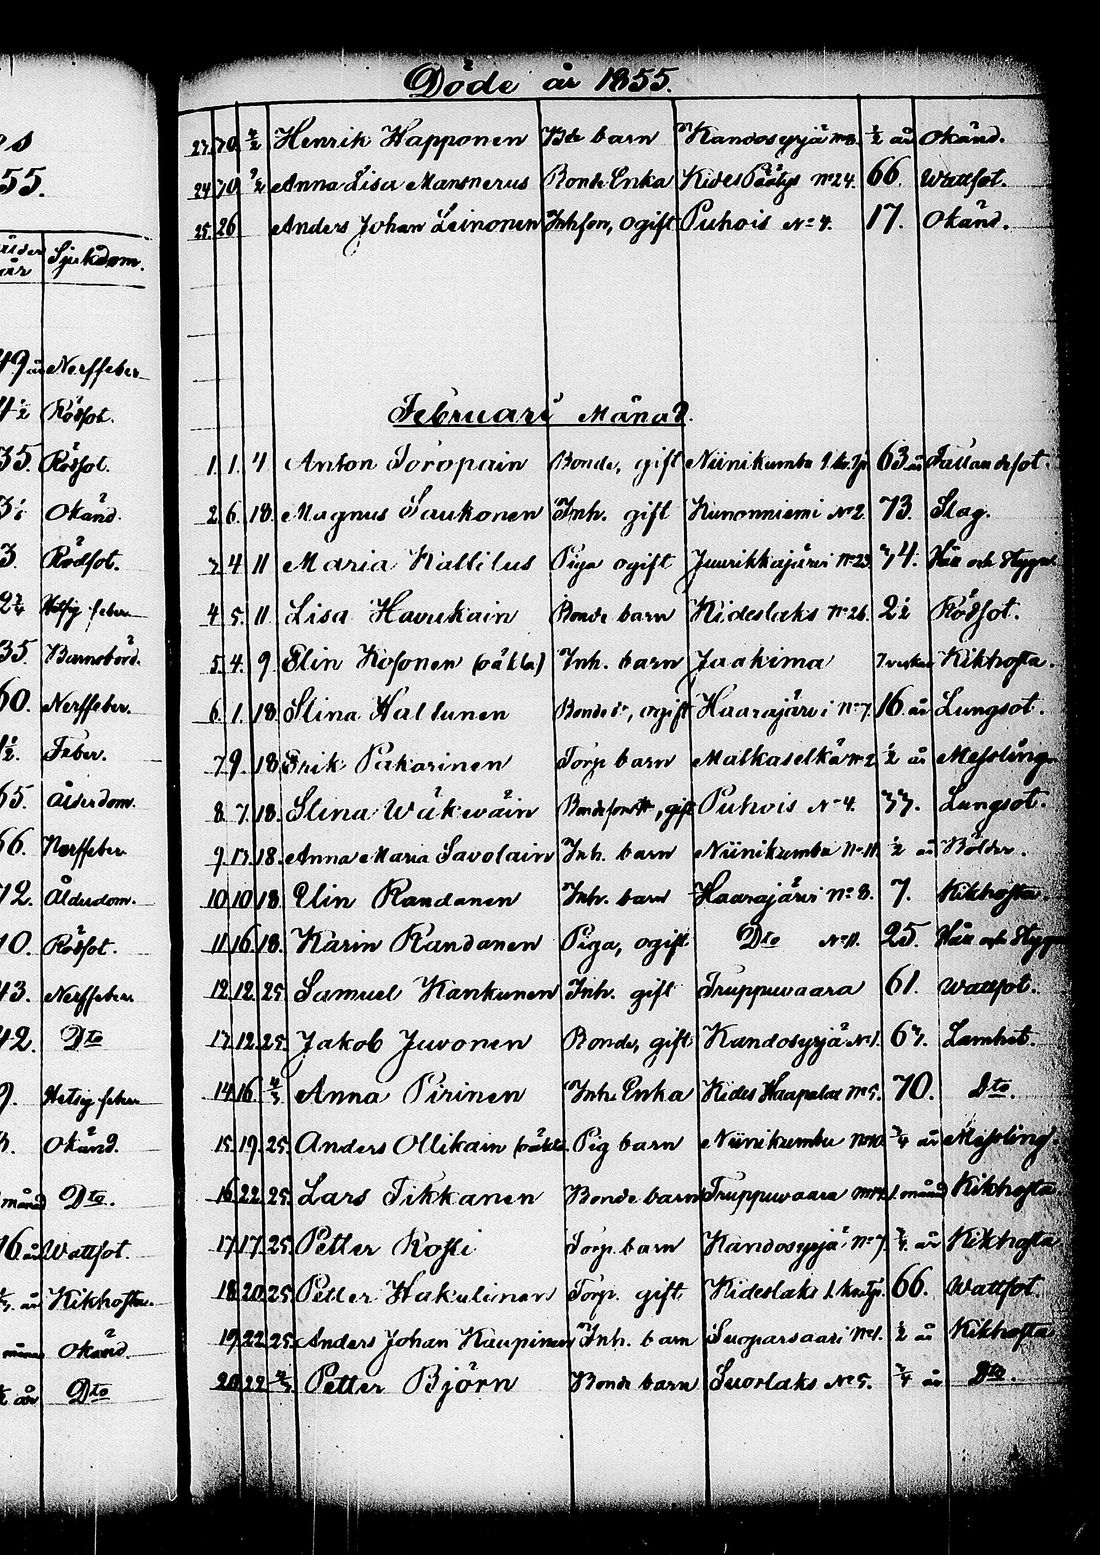 es
55.
ålder år Sjukdom.
49 år Nerffeber
4½ Rödsot.
35. Rödsot.
Okänd.
3. Rödsot.
2¾ Hetsig feber
35. Barnsbörd.
60. Nerffeber.
½. Feber.
65. Ålderdom.
66. Nerffeber
72. Ålderdom.
10. Rödsot.
43. Nerffeber
42. Dto
9. Hetsig feber
Okänd.
månad Dto.
76 år Wattsot.
år Kikhosta.
Okänd.
½ år Dto
Döde år 1855.
23. 30. 4/2 Henrik Happonen Bde barn Kandosyrjä No 3. ½ år Okänd.
24 30 Anna Lisa Mansnerus Bonde Enka Kides Päätys No 24. 66. Wattsot.
25. 26 Anders Johan Leinonen Inhson, ogift Puhois No 4. 17. Okänd.
Februari Månad.
1. 1. 4 Anton Toropain Bonde, gift Niinikumbu 63 år Fallandesot.
2. 6. 18. Magnus Saukonen Inh. gift Kunonniemi No 2. 73. Slag.
3 4 11 Maria Kallilus Piga ogift Juurikkajärvi No 23. 34. Häll och Stygn
4 5. 11. Lisa Havukain Bonde barn Kideslaks No 26. 2½ Rödsot.
5. 4. 9. Elin Kosonen (oäkta) Inh. barn Jaakima 7 veckor Kikhosta.
6. 1. 18. Stina Hallunen Bonde dr, ogift Haarajärvi No 7. 16 år Lungsot.
7 9. 18. Erik Pakarinen Torp barn Matkaselkä No 2 ½ år Messling
8. 7. 18. Stina Wäkeväin gift Puhois No 4. 33. Lungsot.
9. 13. 18. Anna Maria Savolain Inh. barn Niinikumbu No 11. ½ år Bölder.
10 10 18. Elin Randanen Inh. barn Haarajärvi No 8. 7. Kikhosta.
11. 16. 18. Karin Randanen Piga, ogift Dto No 11. 25. Häll och Stygn
12. 12. 25 Samuel Kankunen Inh. gift Truppuvaara 61. Wattsot.
13. 12. 25. Jakob Juvonen Bonde, gift Kandosyrjä No 1. 63. Lamhet.
14 16 4/3 Anna Pirinen Inh. Enka Kides Haapalax No 5. 70. Dto.
15. 19. 25. Anders Ollikain (oäkta Pig barn Niinikumbu No 10. ¾ år Messling.
16. 22 25. Lars Tikkanen Bonde barn Truppuvaara 1 månad Kikhosta
17. 17. 25. Petter Kossi Torp. barn Kandosyrjä No 7. ¾ år Kikhosta
18. 20. 25. Petter Hakulinen Torp. gift Kideslaks 66. Wattsot.
19. 22. 25. Anders Johan Kaupinen Inh. barn Suoparsaari No 1. ½ år Kikhosta
20 22 4/3 Petter Björn Bonde barn Suorlaks No 5. ¾ år Dto.